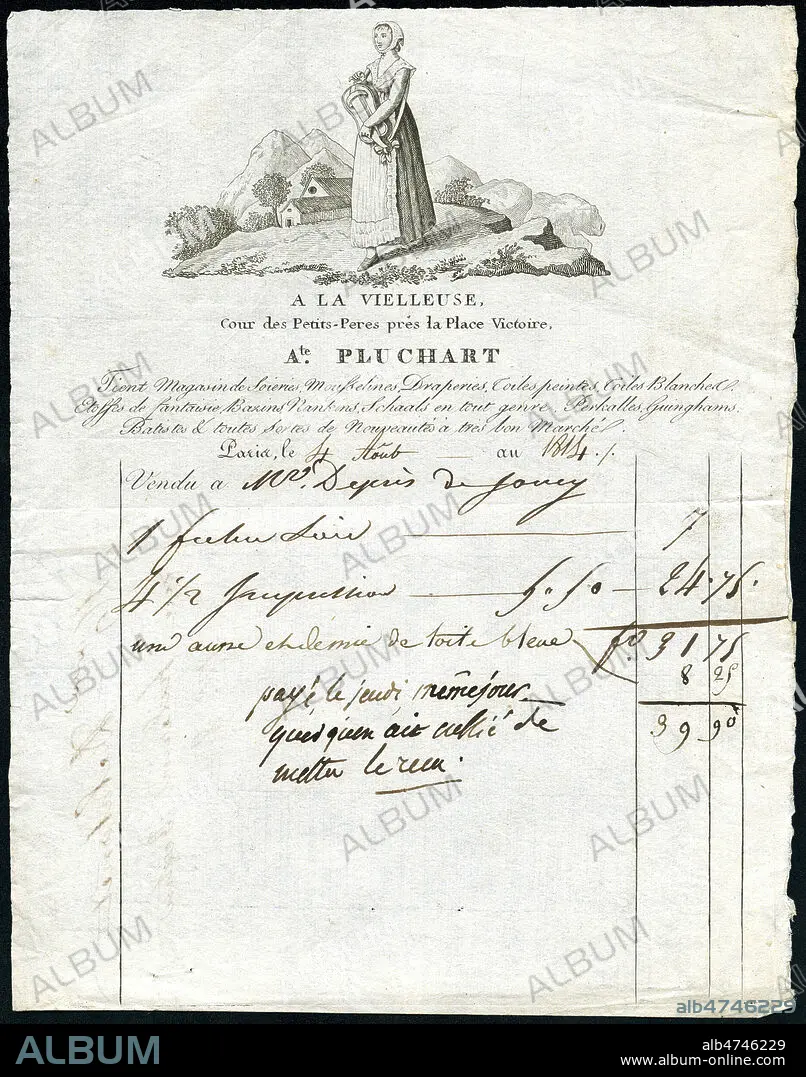 A LA VIELLEUSE,
Cour des Petits-Peres prés la Place Victoire,
Ate. PLUCHART
Tient Magasin de Soieries, Mousselines, Draperies, Toiles peintes, Toiles Blanches,
Etoffes de fantaisie, Bazins Nankins, Schaals en tout genre, Perkalles, Guinghams,
Batistes & toutes Sortes de Nouveautés à très bon Marché.
Paris, le 4 Août au 1814.
Vendu a Mr. Depris de Jouy
1 fichu Soie 7
4 1/2 5.50 24.75.
une aune et demie de toile bleue fs 31 75
8 25
payé le jeudi même jour
39 90
quoiqu'on ait oublié de
mettre le recu.
ALBUM
alb4746229
ALBUM
alb4746229
www.album-online.com